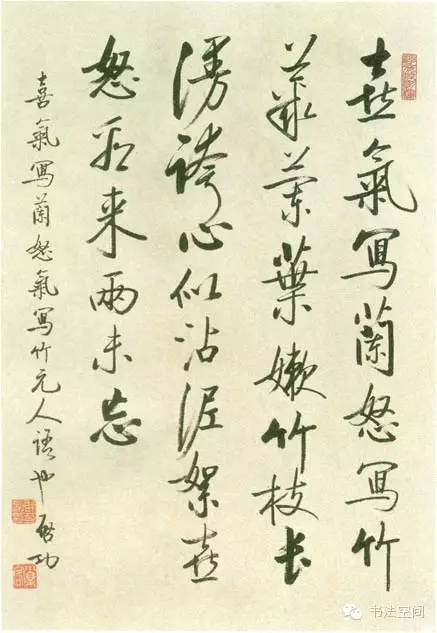 喜氣寫蘭怒寫竹
叢蘭葉嫩竹枝长
漫誇心似沾泥絮喜
怒看来兩未忘
喜氣寫蘭怒氣寫竹元人語也 啟功
书法空间